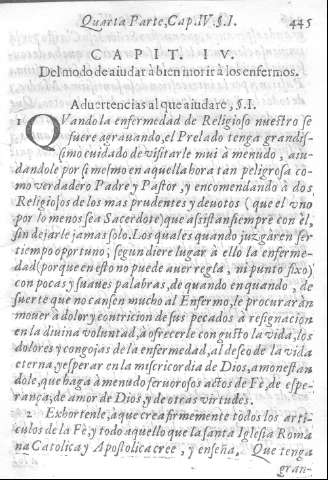 Quarta Parte, Cap. IV. §. I. 445
CAPIT. IV.
Del modo de aiudar à bien morir à los enfermos.
Aduertencias al que aiudare, §. I.
1 QVando la enfermedad de Religioso nuestro se
fuere agrauando, el Prelado tenga grandis-
simo cuidado de visitarle mui à menudo, aiu-
dandole por si mesmo en aquella hora tan peligrosa co-
mo verdadero Padre y Pastor, y encomendando à dos
Religiosos de los mas prudentes y deuotos (que el vno
por lo menos sea Sacerdote) que assistan siempre con èl,
sin dejarle jamas solo. Los quales quando juzgaren ser
tiempo oportuno, segun diere lugar à ello la enferme-
dad (porque en esto no puede auer regla, ni punto fixo)
con pocas y suaues palabras, de quando en quando, de
suerte que no cansen mucho al Enfermo, le procuraràn
mouer à dolor y contricion de sus pecados à resignacion
en la diuina voluntad, à ofrecerle con gusto la vida, los
dolores y congojas de la enfermedad, al deseo de la vida
eterna, y esperar en la misericordia de Dios, amonestan
dole, que haga à menudo feruorosos actos de Fè, de espe-
rança, de amor de Dios, y de otras virtudes.
2 Exhortenle, a que crea firmemente todos los arti-
culos de la Fè, y todo aquello que la santa Iglesia Roma
na Catolica y Apostolica cree, y enseña, Que tenga
gran-